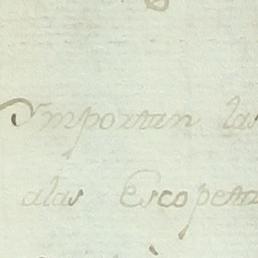 Importan las
alas Escopetas